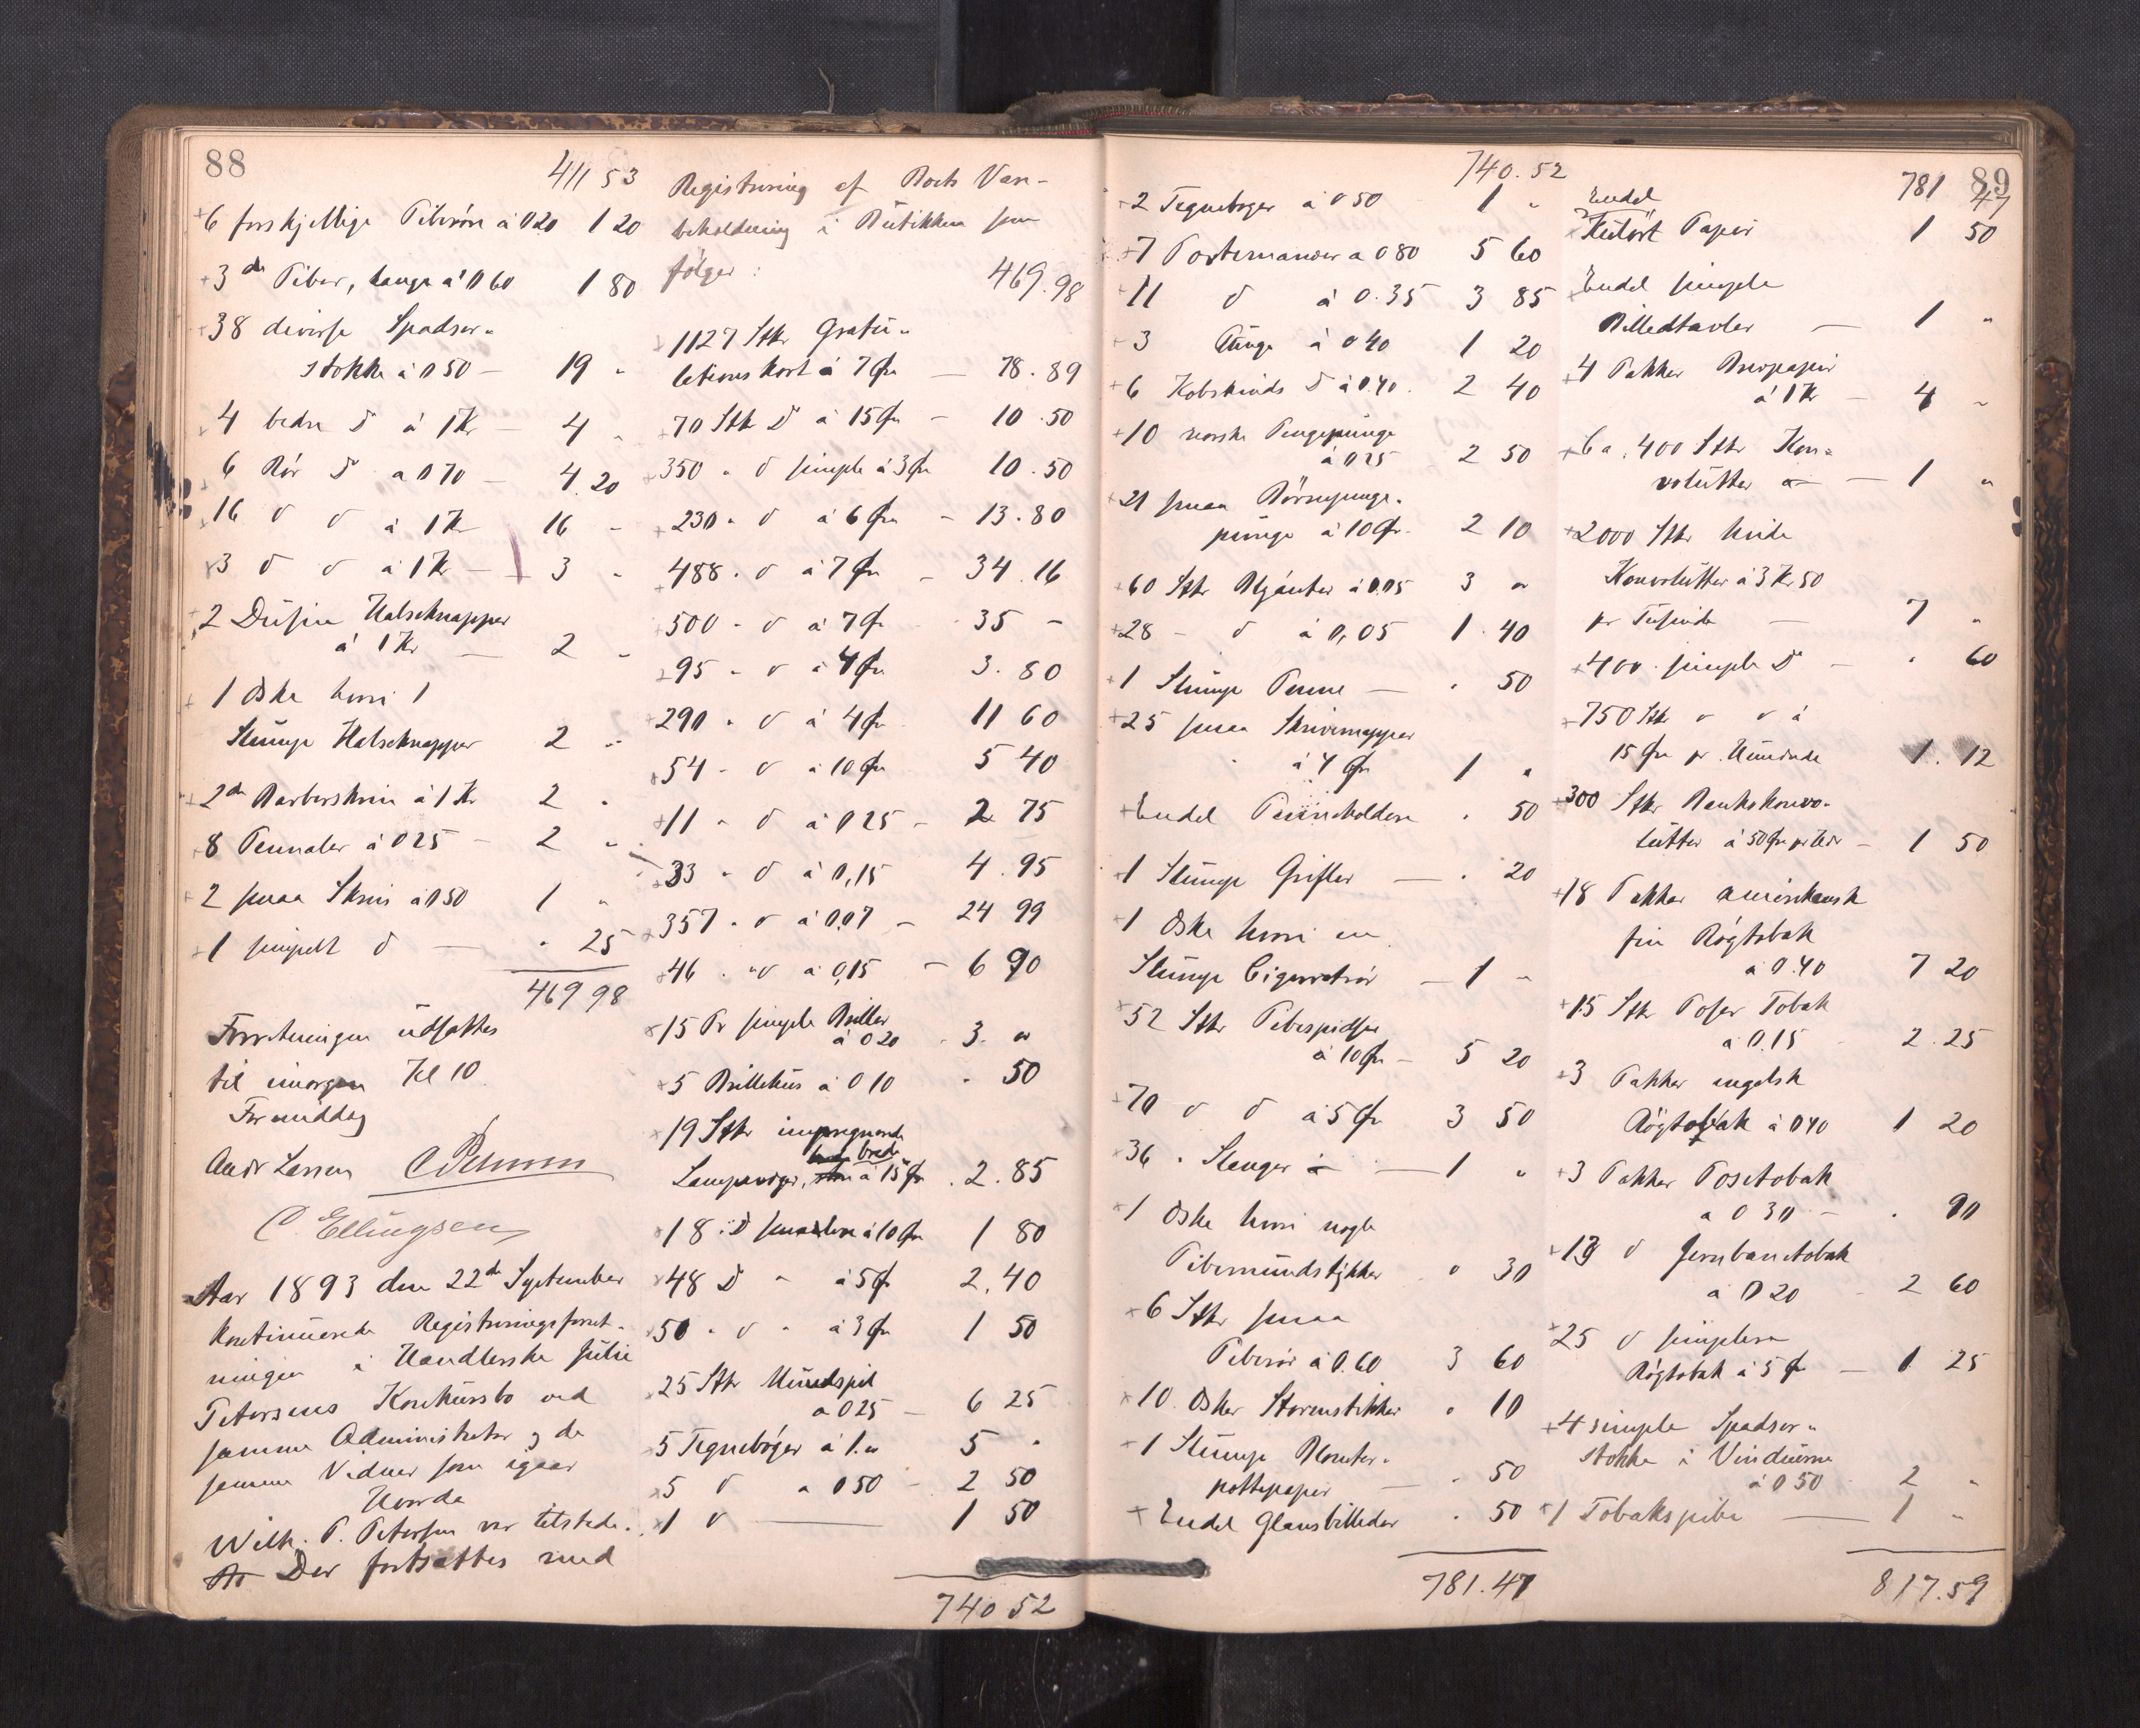 88
411 53
+6 forskjellige Piberøre à 0 20 1 20
+3 do Piber, lange à 0 60 1 80
+38 diverse Spadser-
stokke à 0 50 — 19 "
4 bedre D à 1 Kr — 4 "
6 Rör D a 0 70 — 4.20
16 d d à 1 Kr 16 -
3 d d à 1 Kr — 3 "
2 Dusin Halseknapper
à 1 Kr — 2 "
+ 1 Æske hvori 1
Slump Halseknapper 2 "
+2 do Barberskrin à 1 Kr 2 "
+8 Pennaler à 0 25 — 2 "
+2 smaa Skrin à 0 50 1 "
+1 simpelt d — " 25
469 98
Forretningen udsattes
til imorgen Kl 10
Formiddag
Andr Larsen C Petersen
C. Ellingsen
Aar 1893 den 22de September
kontinuerede Registreringsforret-
ningen i Handlerske Julie
Petersens Konkursbo ved
samme Administrator og de
samme Vidner som igaar
Hvorda
Wilh. P. Petersen var tilstede.
Der fortsattes med
Registrering af Boets Vare-
beholdning i Butikken som
følger: 469.98
+1127 Stkr Gratu-
lationskort à 7 Øre — 78.89
+70 Stkr D à 15 Øre — 10.50
350 " d simple à 3 Øre 10.50
+230 " d à 6 Øre — 13.80
+488 " d à 7 Øre — 34.16
+500 " d à 7 Øre 35 -
+95 " d à 4 Øre 3.80
+290 " d à 4 Øre 11 60
+54 " d à 10 Øre 5 40
+11 " d à 0 25 — 2 75
+33 " d à 0,15 4.95
+357 " d à 0.07 — 24 99
+46 " d à 0,15 — 6 90
+15 Pr simple Briller
à 0 20 3. "
+5 Brillehus à 0 10 " 50
+19 Stkr impregnerede
brede
Lampevæger, à 15 Øre. 2.85
+18 D smalere à 10 Øre 1 80
+48 D " à 5 Ø 2.40
+50 " d " à 3 Øre 1 50
+25 Stkr Mundspil
a 0 25 — 6 25
+5 Tegnebøger à 1." 5 "
+5 d a 0 50 — 2 50
+1 d — 1 50
740 52
740.52
+2 Tegnebøger à 0 50 1 "
+7 Portemonær a 0 80 5 60
+11 d à 0.35 3 85
+3 Punge à 0 40 1 20
+6 Kobskinds D à 0.40. 2 40
+10 norske Pengepunge
à 0 25 2 50
+21 smaa Börnepenge-
punge à 10 Ør. 2 10
+60 Stkr Blyanter à 0.05 3 "
+28 - d à 0,05 1.40
+1 Slump Penne — " 50
+25 smaa Skrivemapper
à 4 Øre 1 "
+Endel Penneholdere " 50
+1 Slump Grifler — " 20
+1 Æske hvori en
Slump Cigarretrör — 1 "
+52 Stkr Pibespidse
à 10 Øre — 5 20
+70 d d à 5 Ø 3 50
+36 " Slanger — 1 "
+1 Æske hvori nogle
Pibemundstykker " 30
+6 Stkr smaa
Piberör à 0.60 3 60
+10 Æsker Stormstikker " 10
+1 Slump Blomster-
pottepapir — " 50
+Endel Glansbilleder " 50
781.47
781 47
89
Endel
Kulört Papir 1 50
+Endel simple
Billedtavler — 1 "
+4 Pakker Brevpapir
à 1 Kr — 4 "
+Ca. 400 Stkr Kon-
volutter — 1 "
+2000 Stkr hvide
Konvolutter à 3 Kr 50
pr Tusinde — 7 "
+400 simple D — " 60
+750 Stk d d à
15 Øre pr. Hundrede 1.12
+300 Stkr Bankskonvo-
lutter à 50 Øre pr — 1 50
+18 Pakker amerikansk
fin Røgtobak
à 0.40 7 20
+15 Stkr Poser Tobak
a 0.15 2.25
+3 Pakker engelsk
Røgtobak à 0 40 1 20
+3 Pakker Posetobak
a 0 30 — " 90
+13 d Jernbanetobak
a 0 20 2 60
+25 d simplere
Røgtobak à 5 Ø — 1 25
+4 simple Spadser-
stokke i Vinduerne
à 0 50 2 "
+1 Tobakspibe — 1 "
817.59